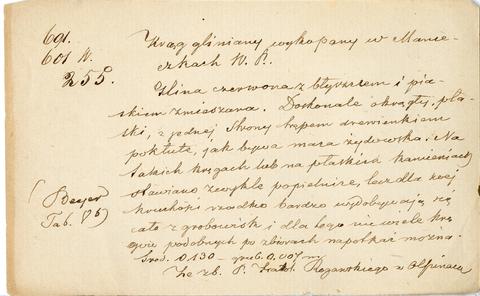 691.
601 N.
255.
Krąg gliniany wykopany w Manie-
czkach W. P.
Glina czerwona z błyszczem i pia-
skiem zmieszana. Doskonale okrągły, pła-
ski, z jednej strony tępem drewienkiem
pokłute, jak bywa maca żydowska. Na
takich kręgach lub na płaskich kamieniach
stawiano zwykle popielnice, lecz dla swej
kruchości rzadko bardzo wydobywają się
cało z grobowisk i dla tego nie wiele krę-
gów podobnych po zbiorach napotkać można.
Śred. 0.130 – grub. 0.007 m
Ze zb. P. Rogawskiego z Ołpin
(Beyer
Tab.